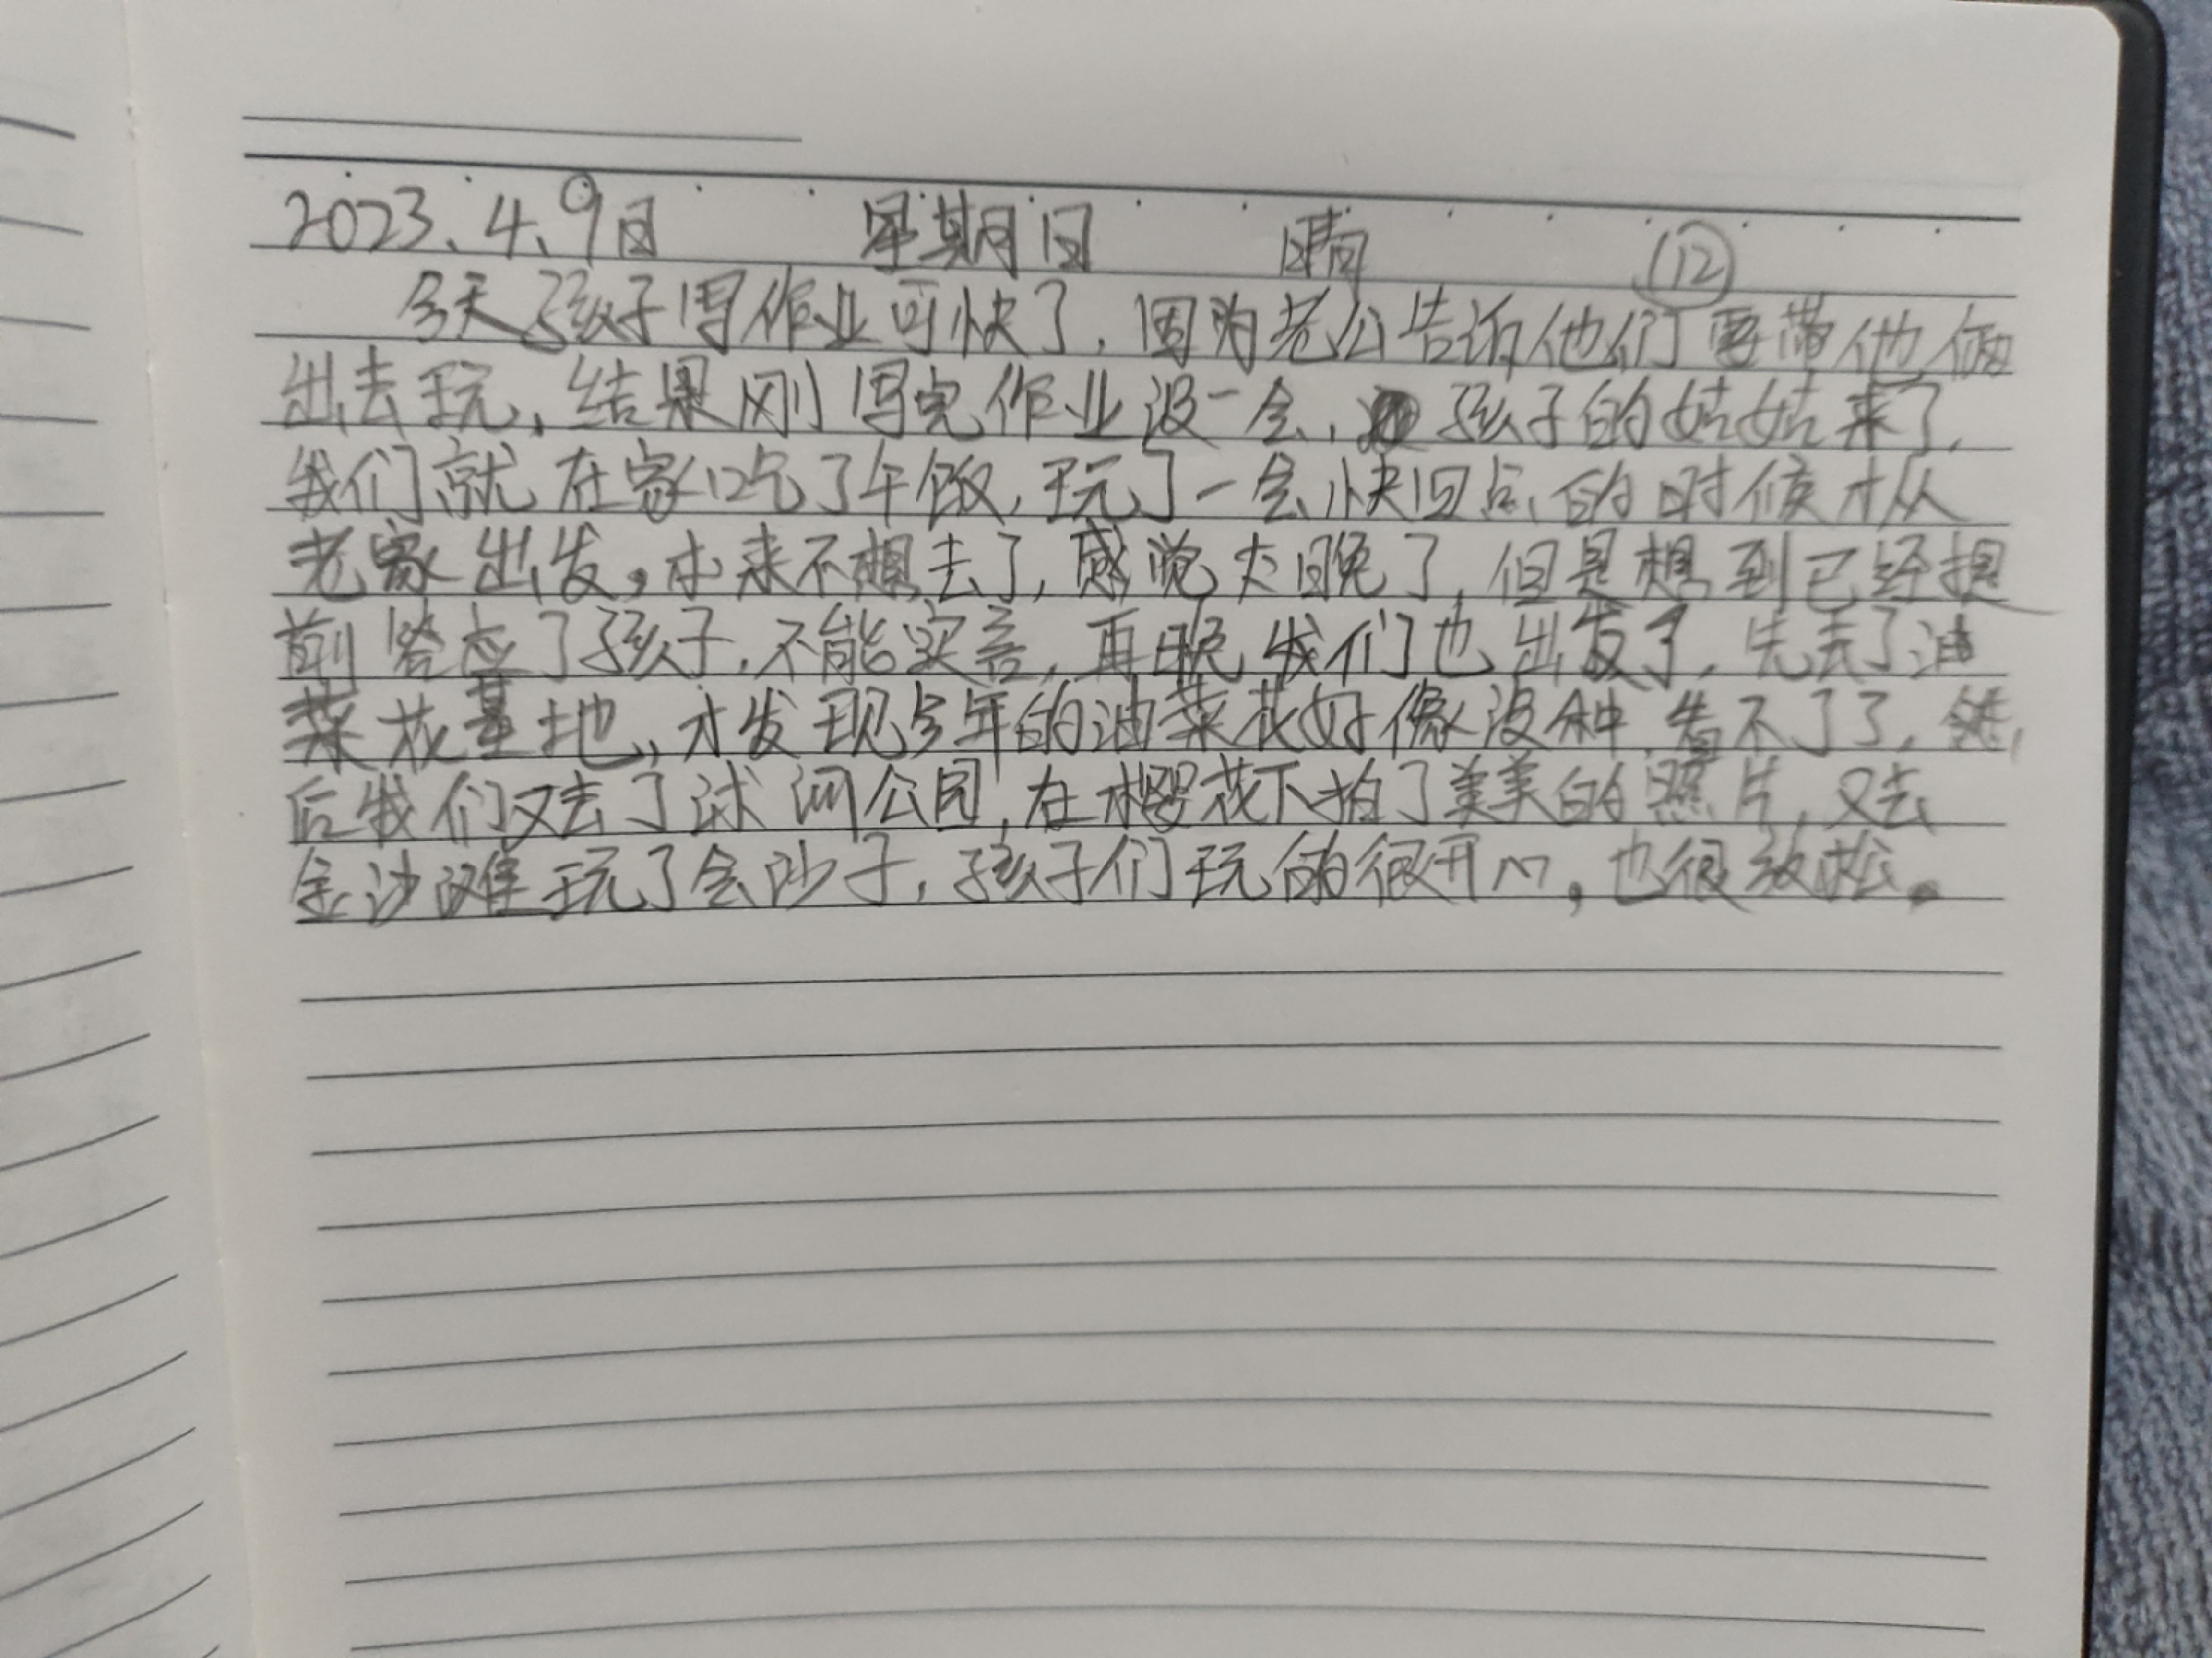 2023.4.9日 星期日 晴 ⑫
今天孩子写作业可快了，因为老公告诉他们要带他俩
出去玩，结果刚写完作业没一会，孩子的姑姑来了，
我们就在家吃了午饭，玩了一会快四点的时候才从
老家出发。本来不想去了，感觉太晚了，但是想到已经提
前答应了孩子，不能食言，再晚我们也出发了，先去了油
菜花基地，才发现今年的油菜花好像没种，看不了了，然
后我们又去了洣河公园，在樱花下拍了美美的照片，又去
金沙滩玩了会沙子，孩子们玩的很开心，也很放松。